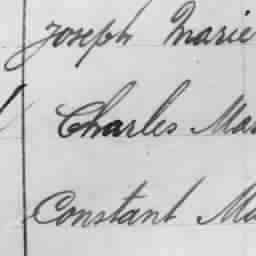 Joseph Marie
Charles Ma
Constant Ma